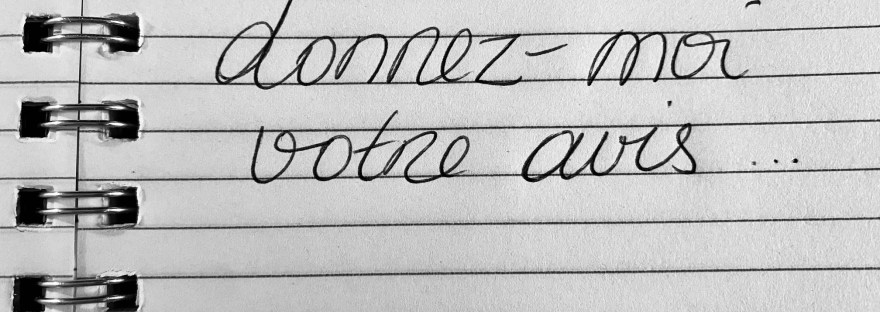 donnez-moi
votre avis ...